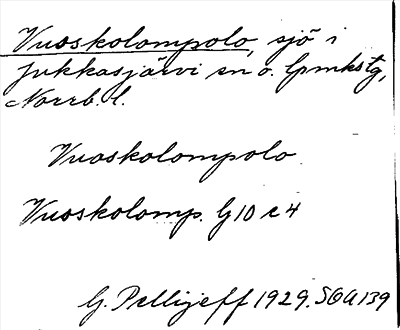 Vuoskolompolo, sjö i
Jukkasjärvi sn o. lpmkstg,
Norrb. l.
Vuoskolompolo
Vuoskolomp. G10 c4
G. Pellijeff 1929. SOU 139